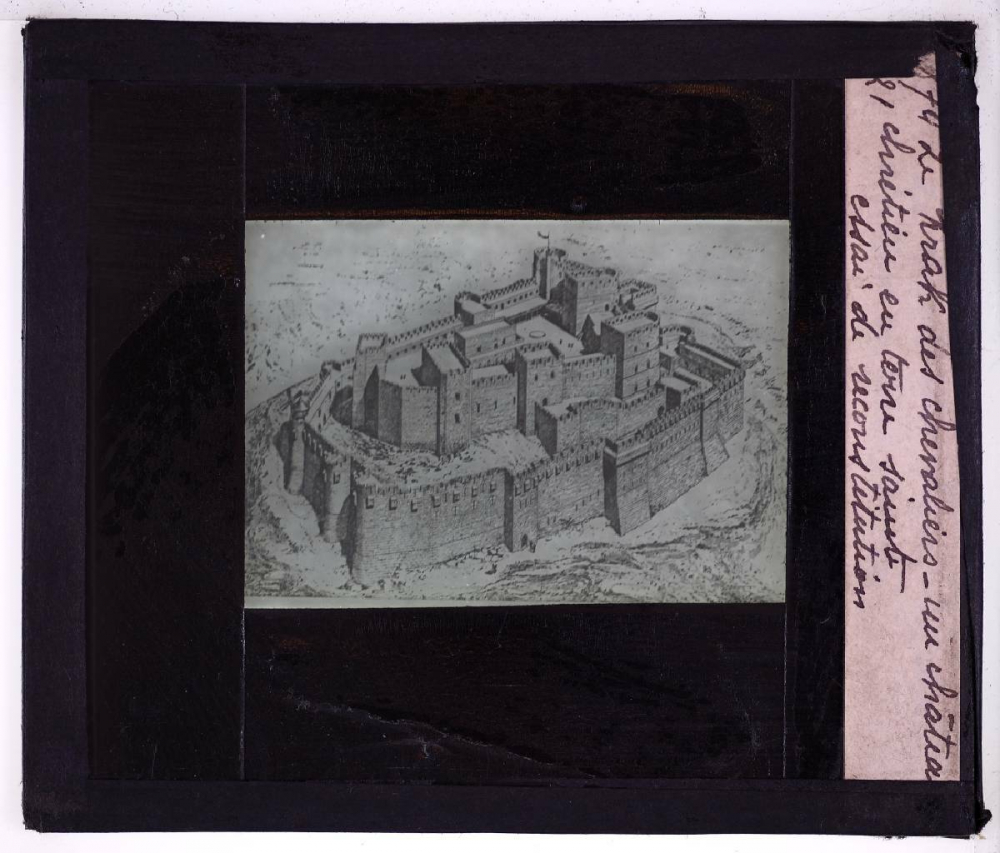 74 Le Krak des chevaliers - un chatea
21 chrétien en terre sainte
essai de reconstitution